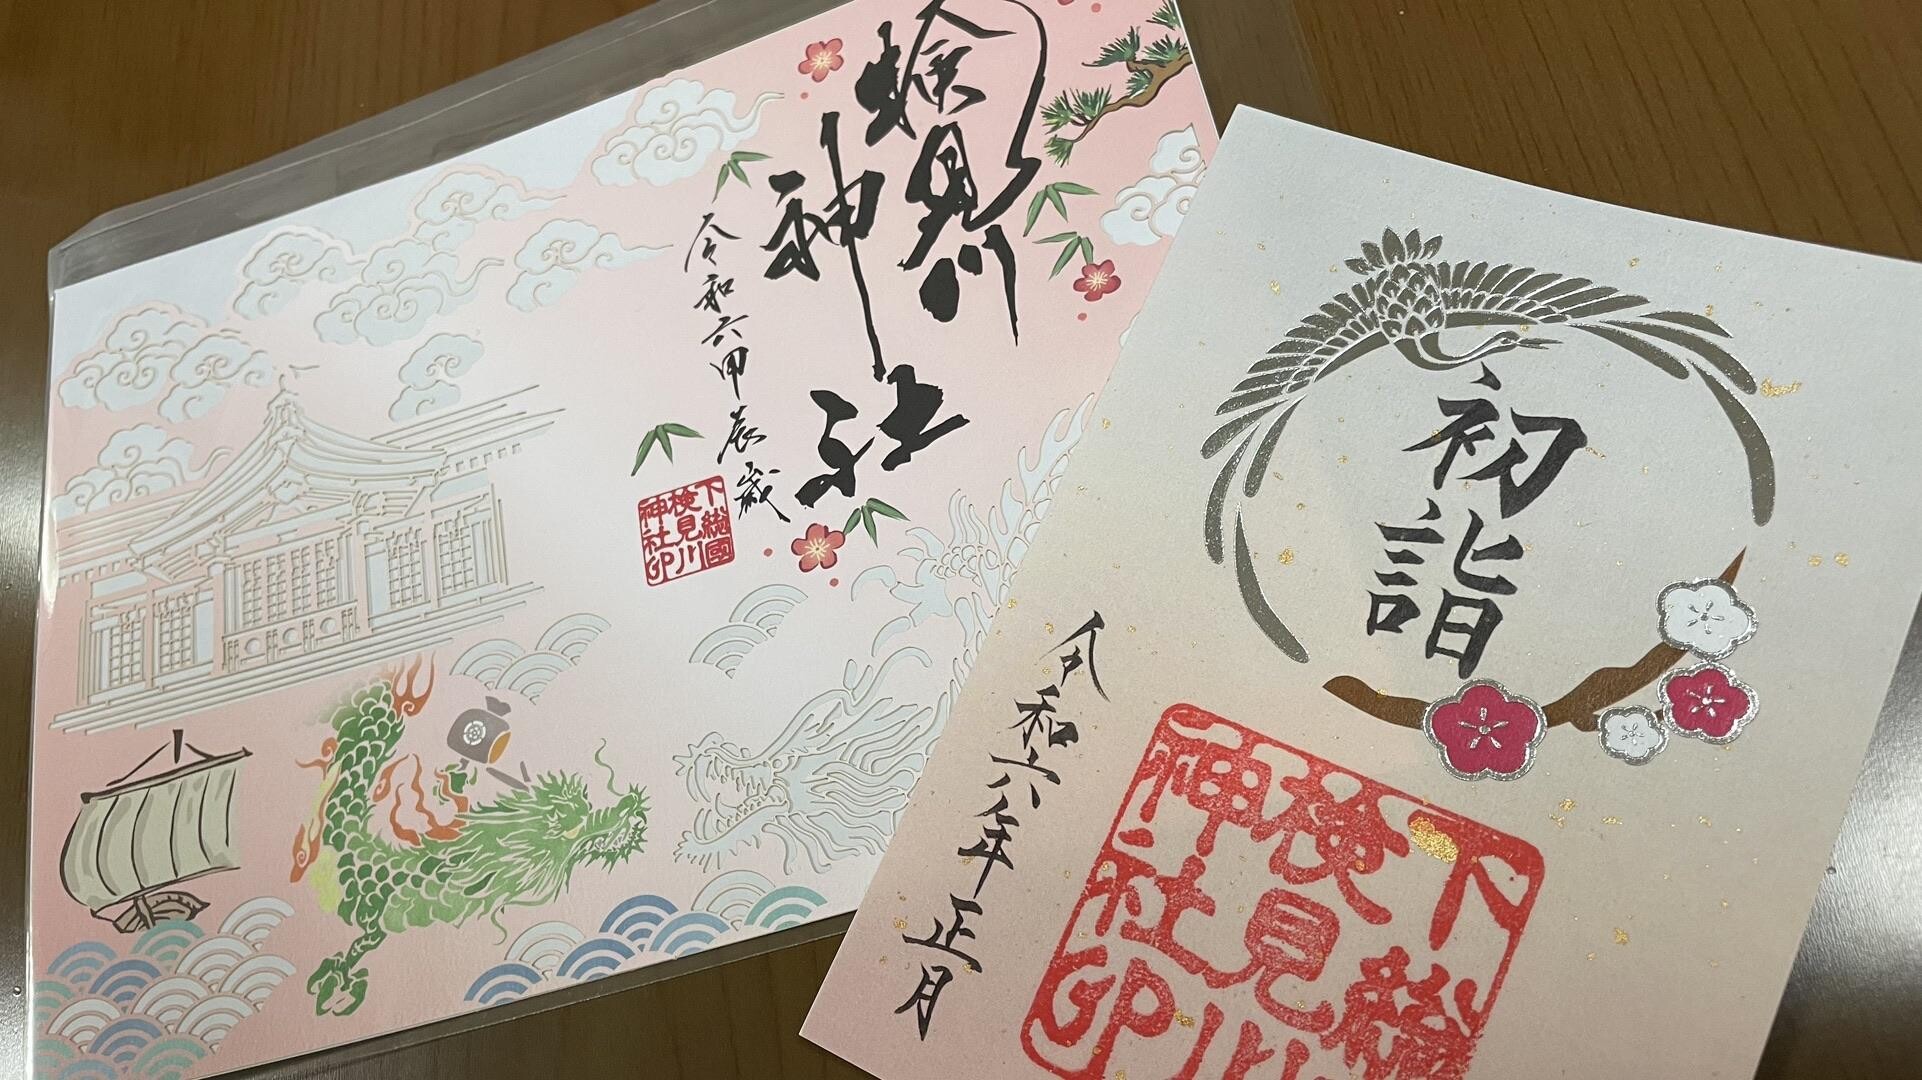 検見川
神社
令和六甲辰歳
下総國
検見川
神社印
初詣
令和六年正月
下総
検見川
神社印